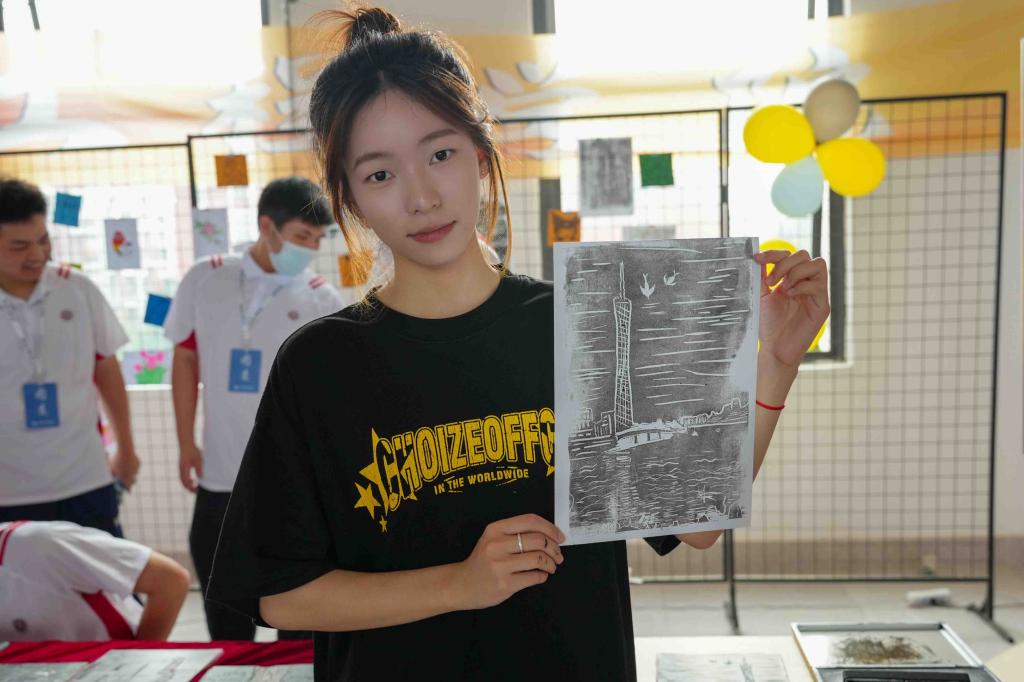 CHOIZEOFFC
IN THE WORLDWIDE